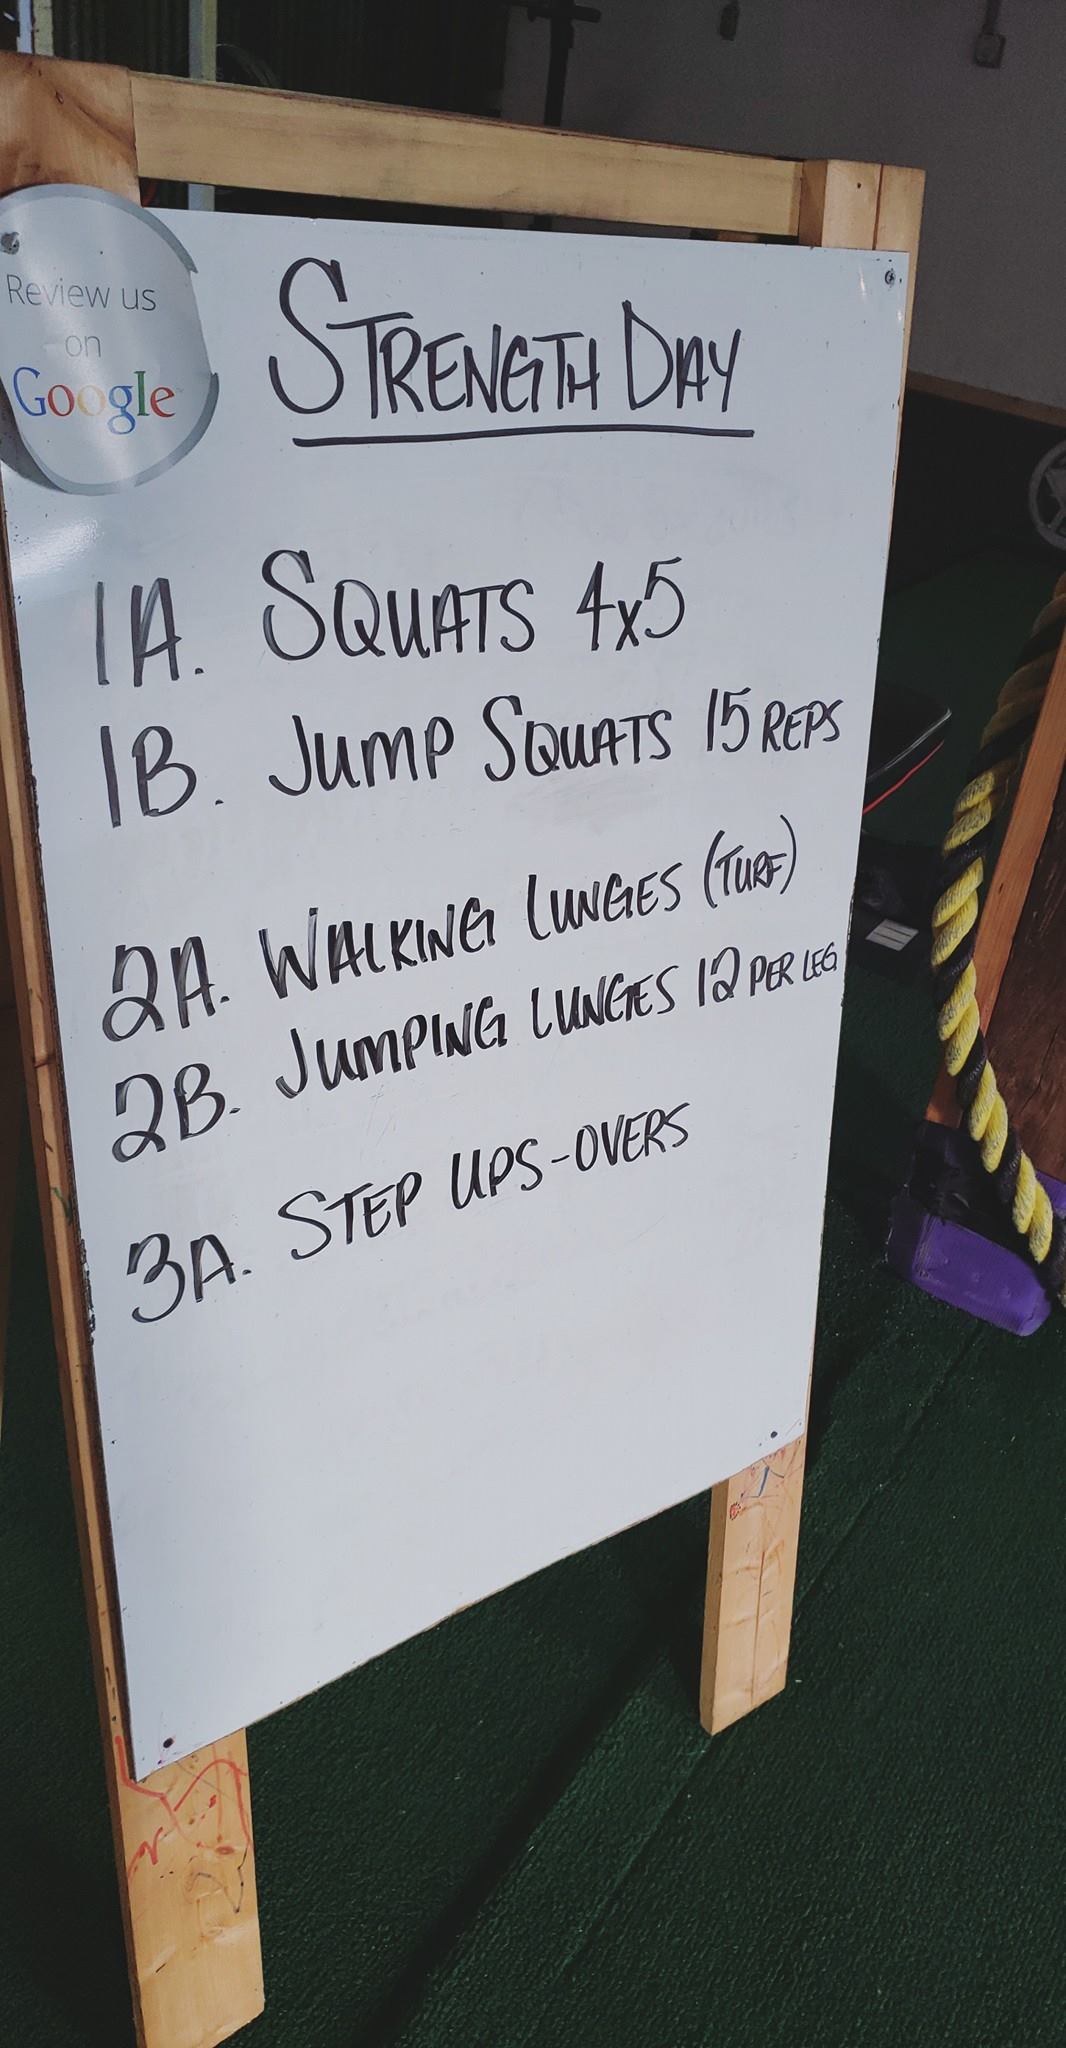 Review us
on
Google
STRENGTH DAY
1A. SQUATS 4x5
1B. JUMP SQUATS 15 REPS
2A. WALKING LUNGES (TURF)
2B. JUMPING LUNGES 12 PER LEG
3A. STEP UPS-OVERS